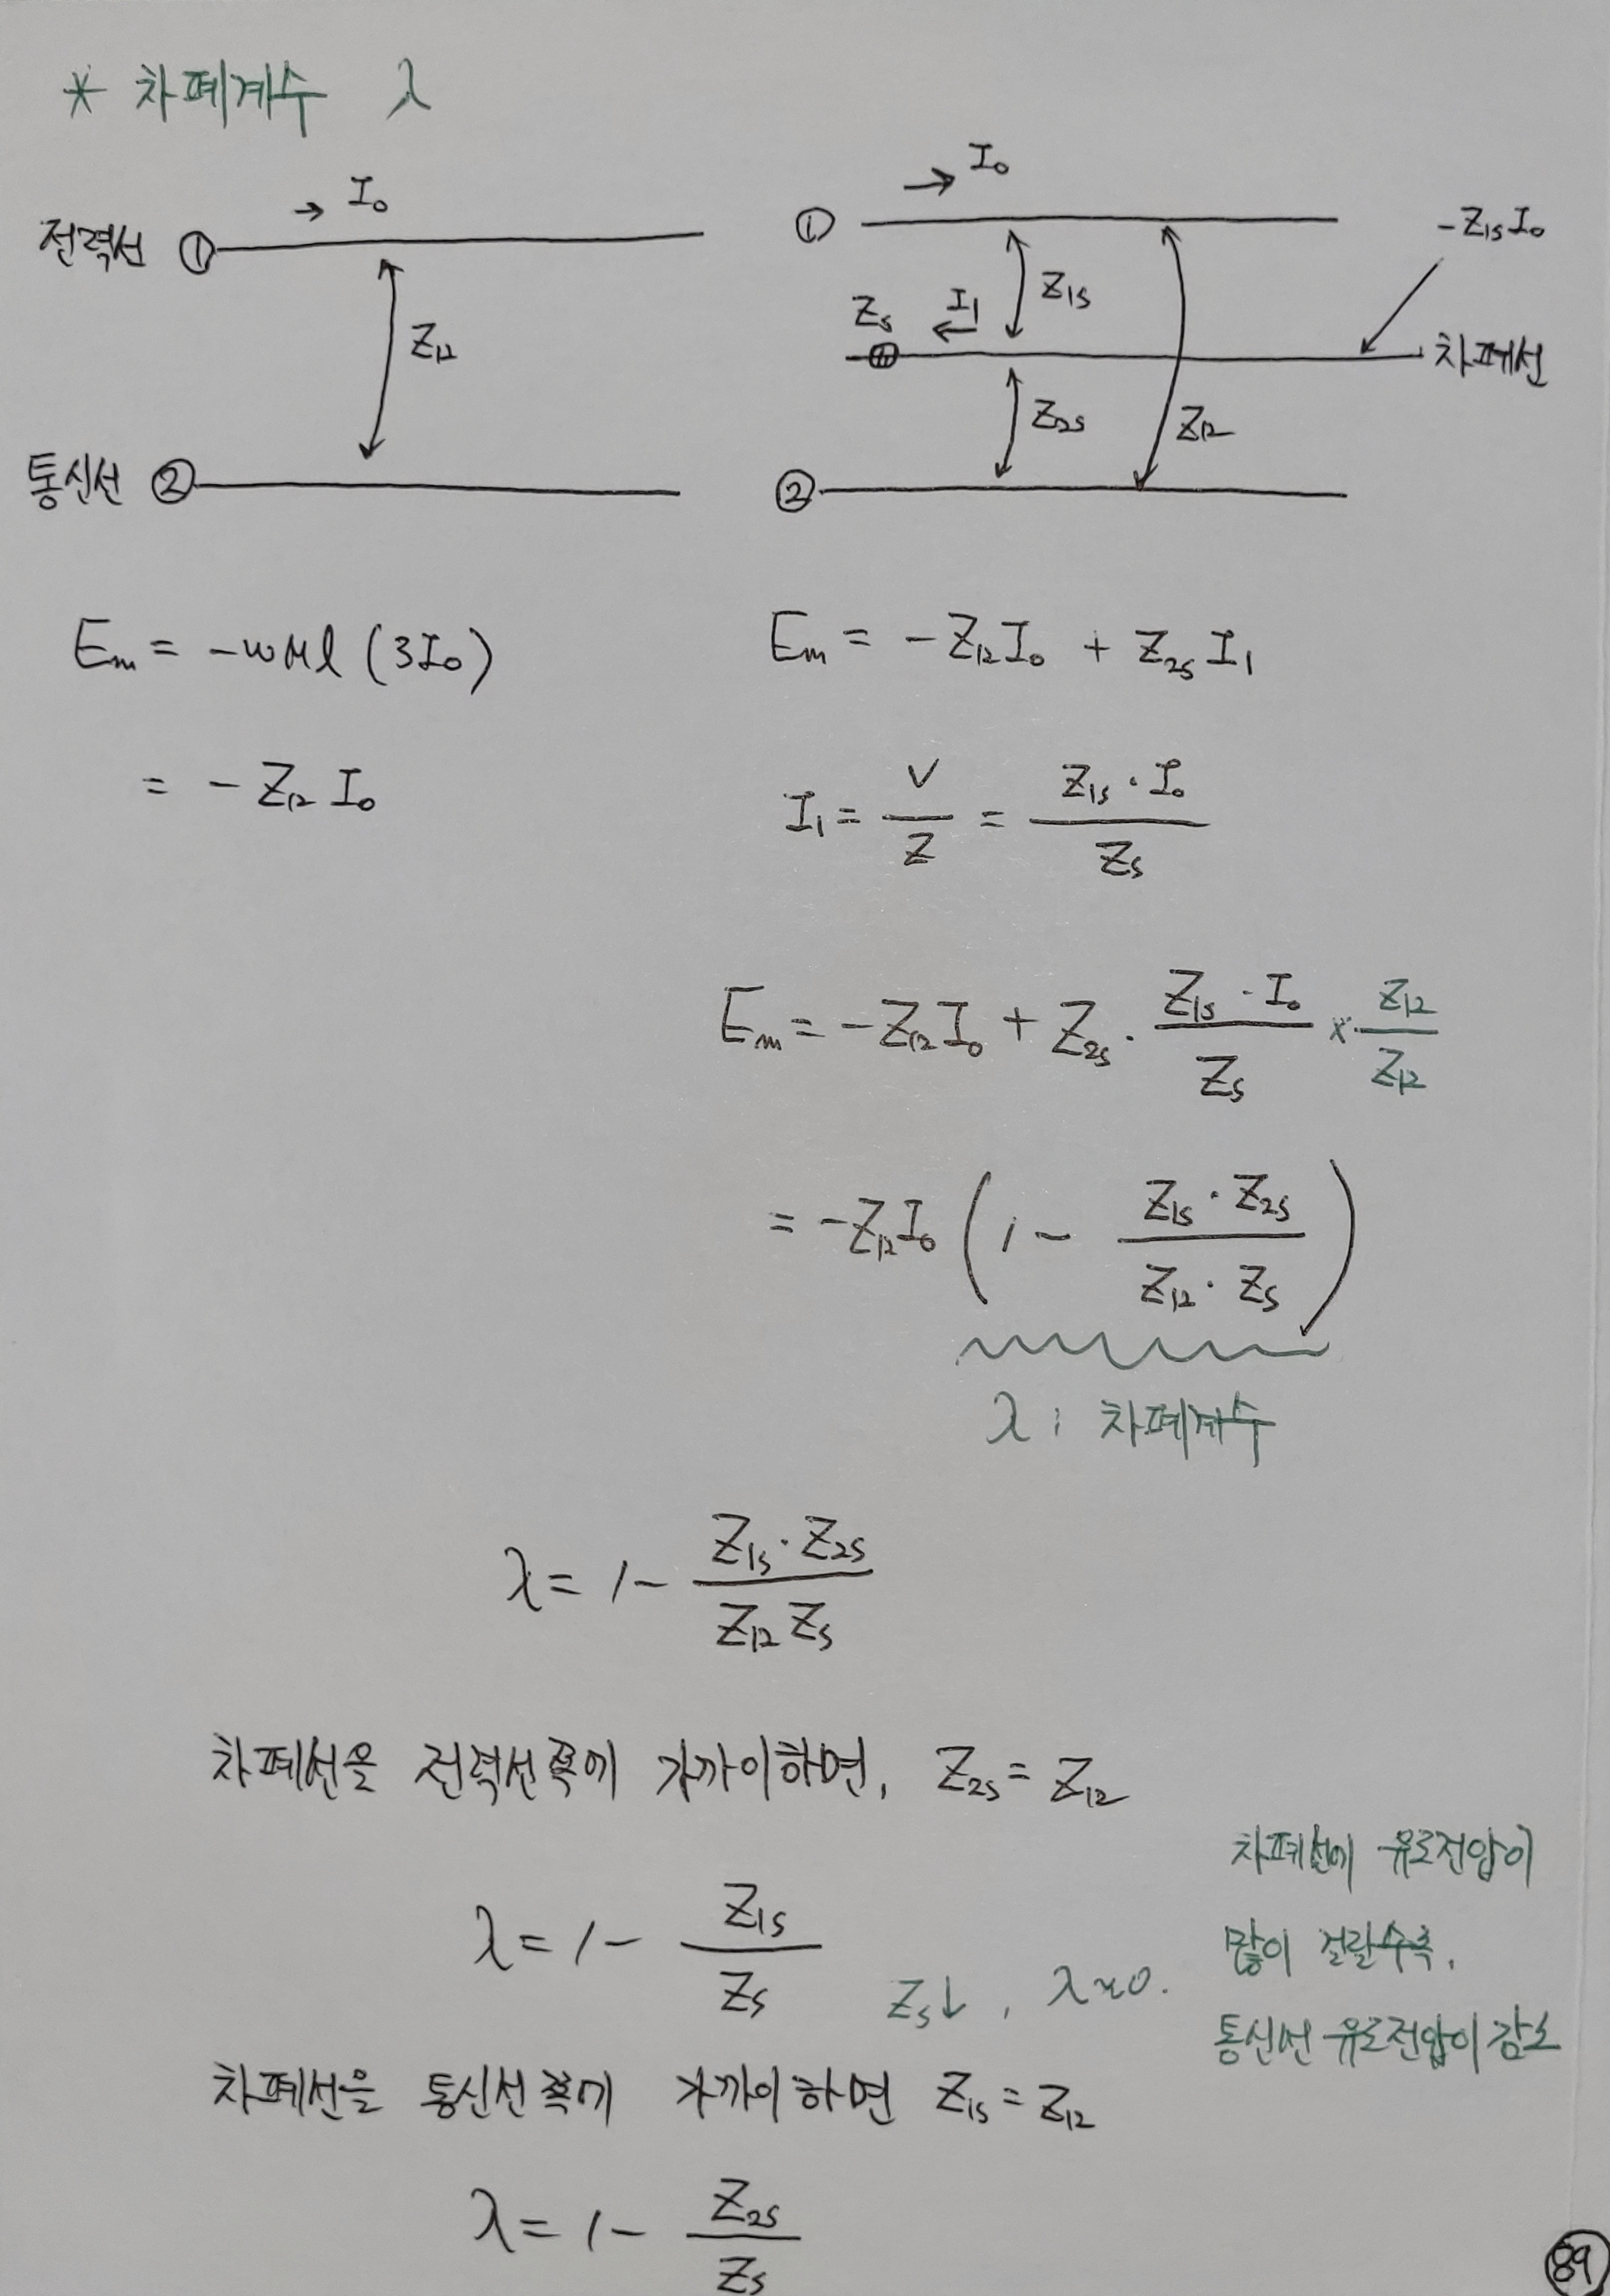 * 차폐계수 λ
→ I₀
전력선 ①
Z₁₂
통신선 ②
→ I₀
①
-Z₁ₛI₀
Z₁ₛ
Zₛ
I₁
←
차폐선
Z₂ₛ
Z₁₂
②
Eₘ = -ωMl (3I₀)
= - Z₁₂ I₀
Eₘ = -Z₁₂I₀ + Z₂ₛ I₁
I₁ = V/Z = Z₁ₛ · I₀ / Zₛ
Eₘ = -Z₁₂I₀ + Z₂ₛ · Z₁ₛ · I₀ / Zₛ × Z₁₂/Z₁₂
= -Z₁₂I₀ (1 - Z₁ₛ · Z₂ₛ / Z₁₂ · Zₛ)
λ : 차폐계수
λ = 1 - Z₁ₛ · Z₂ₛ / Z₁₂ Zₛ
차폐선을 전력선쪽에 가까이하면, Z₂ₛ = Z₁₂
λ = 1 - Z₁ₛ / Zₛ
Zₛ↓, λ≈0.
차폐선에 유도전압이
많이 걸릴수록,
통신선 유도전압이 감소
차폐선을 통신선쪽에 가까이하면 Z₁ₛ = Z₁₂
λ = 1 - Z₂ₛ / Zₛ
89